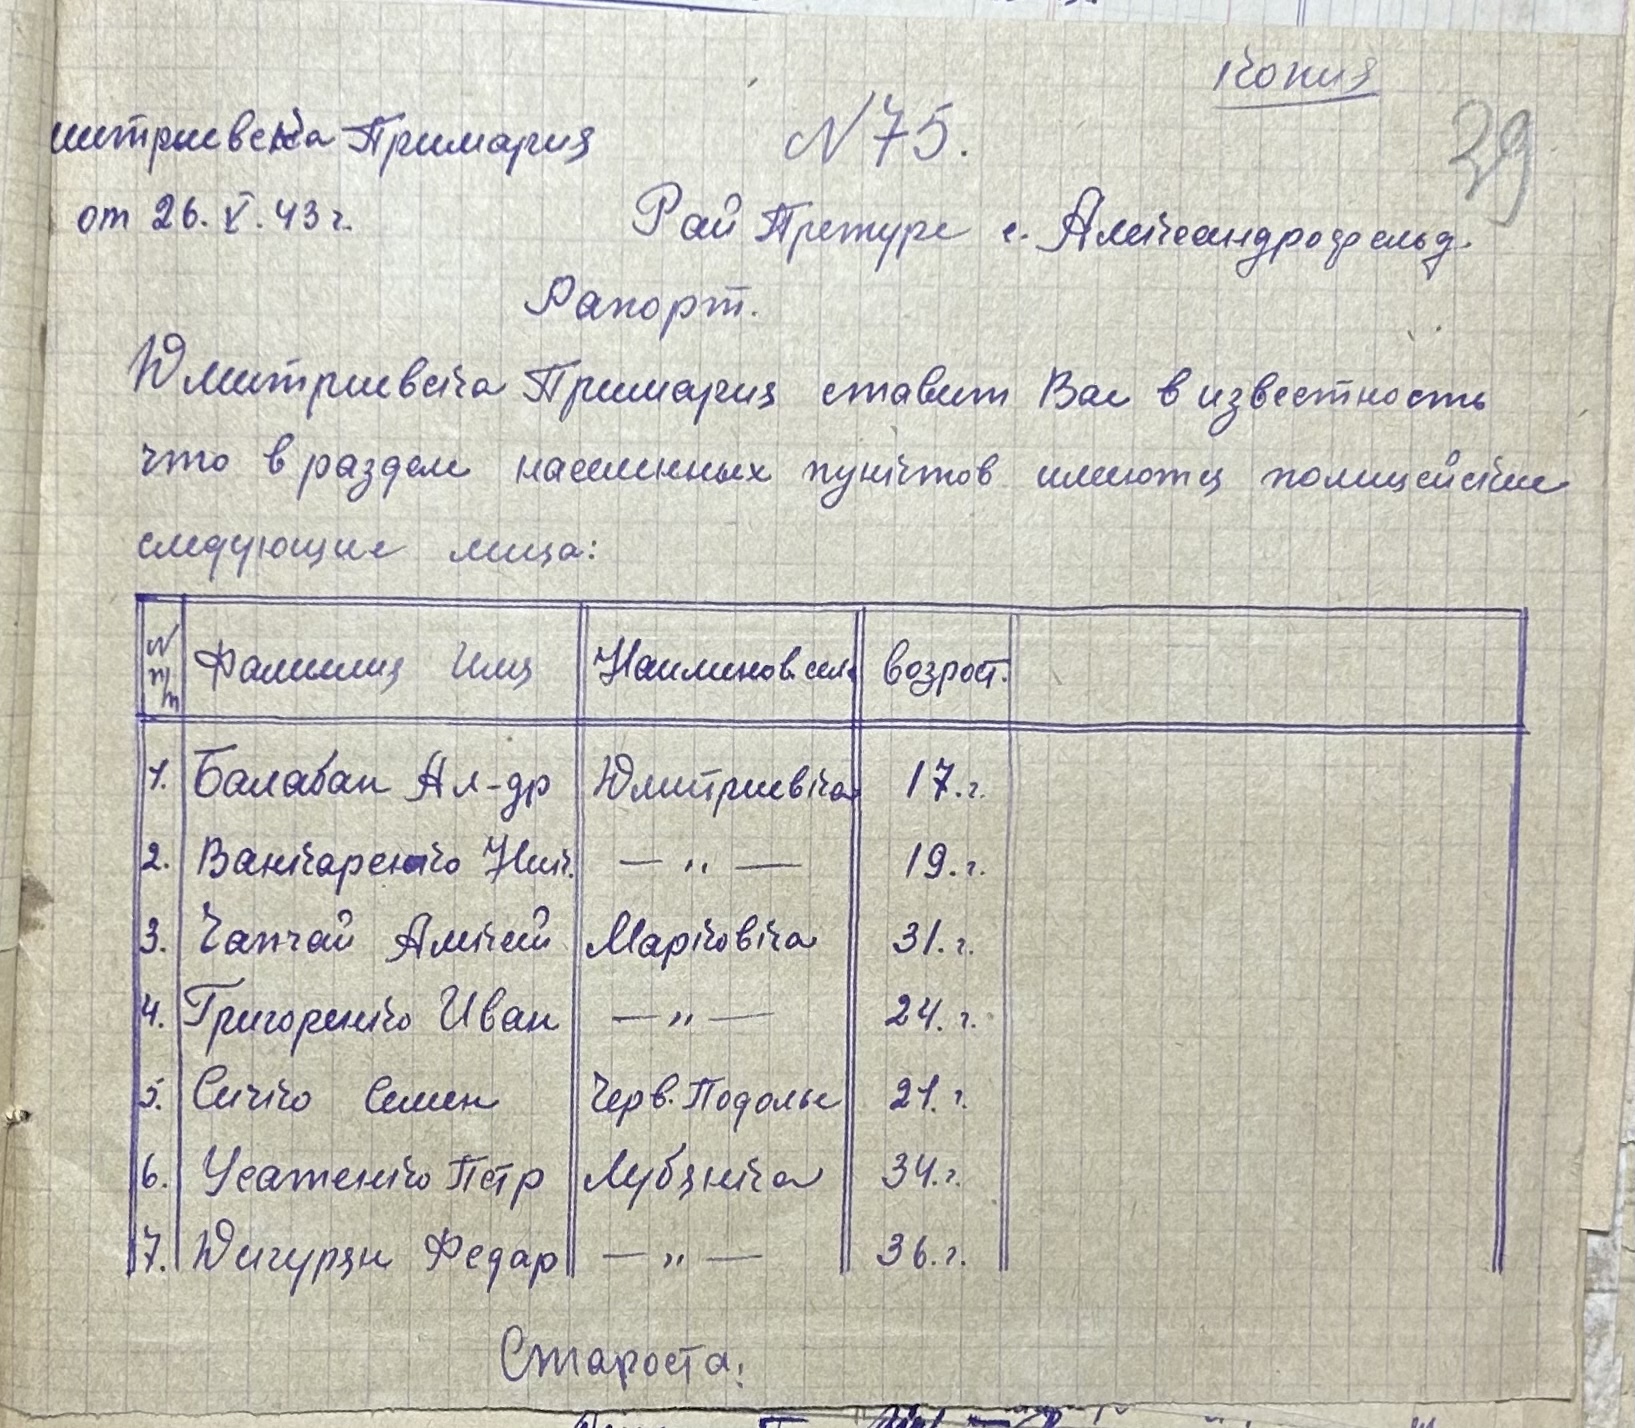 Копия
29
митриевска Примария
N 75.
от 26. V. 43 г.
Рай Претуре с. Александрофельд.
Рапорт.
Дмитриевска Примария ставит Вас в известность
что в разделе населенных пунктов имеютця полицейские
следующие лица:
N п/п Фамилия Имя Наименов. сел. возрост.
1. Балабан Ал-др Дмитриевка 17. г.
2. Ванкаренко Ник. — „ — 19. г.
3. Чапчай Алексей Марковка 31. г.
4. Григоренко Иван — „ — 24. г.
5. Сичко Семен Черв. Подолье 21. г.
6. Усатенко Пётр Лубянка 34. г.
7. Дигурян Федар — „ — 36. г.
Староста: